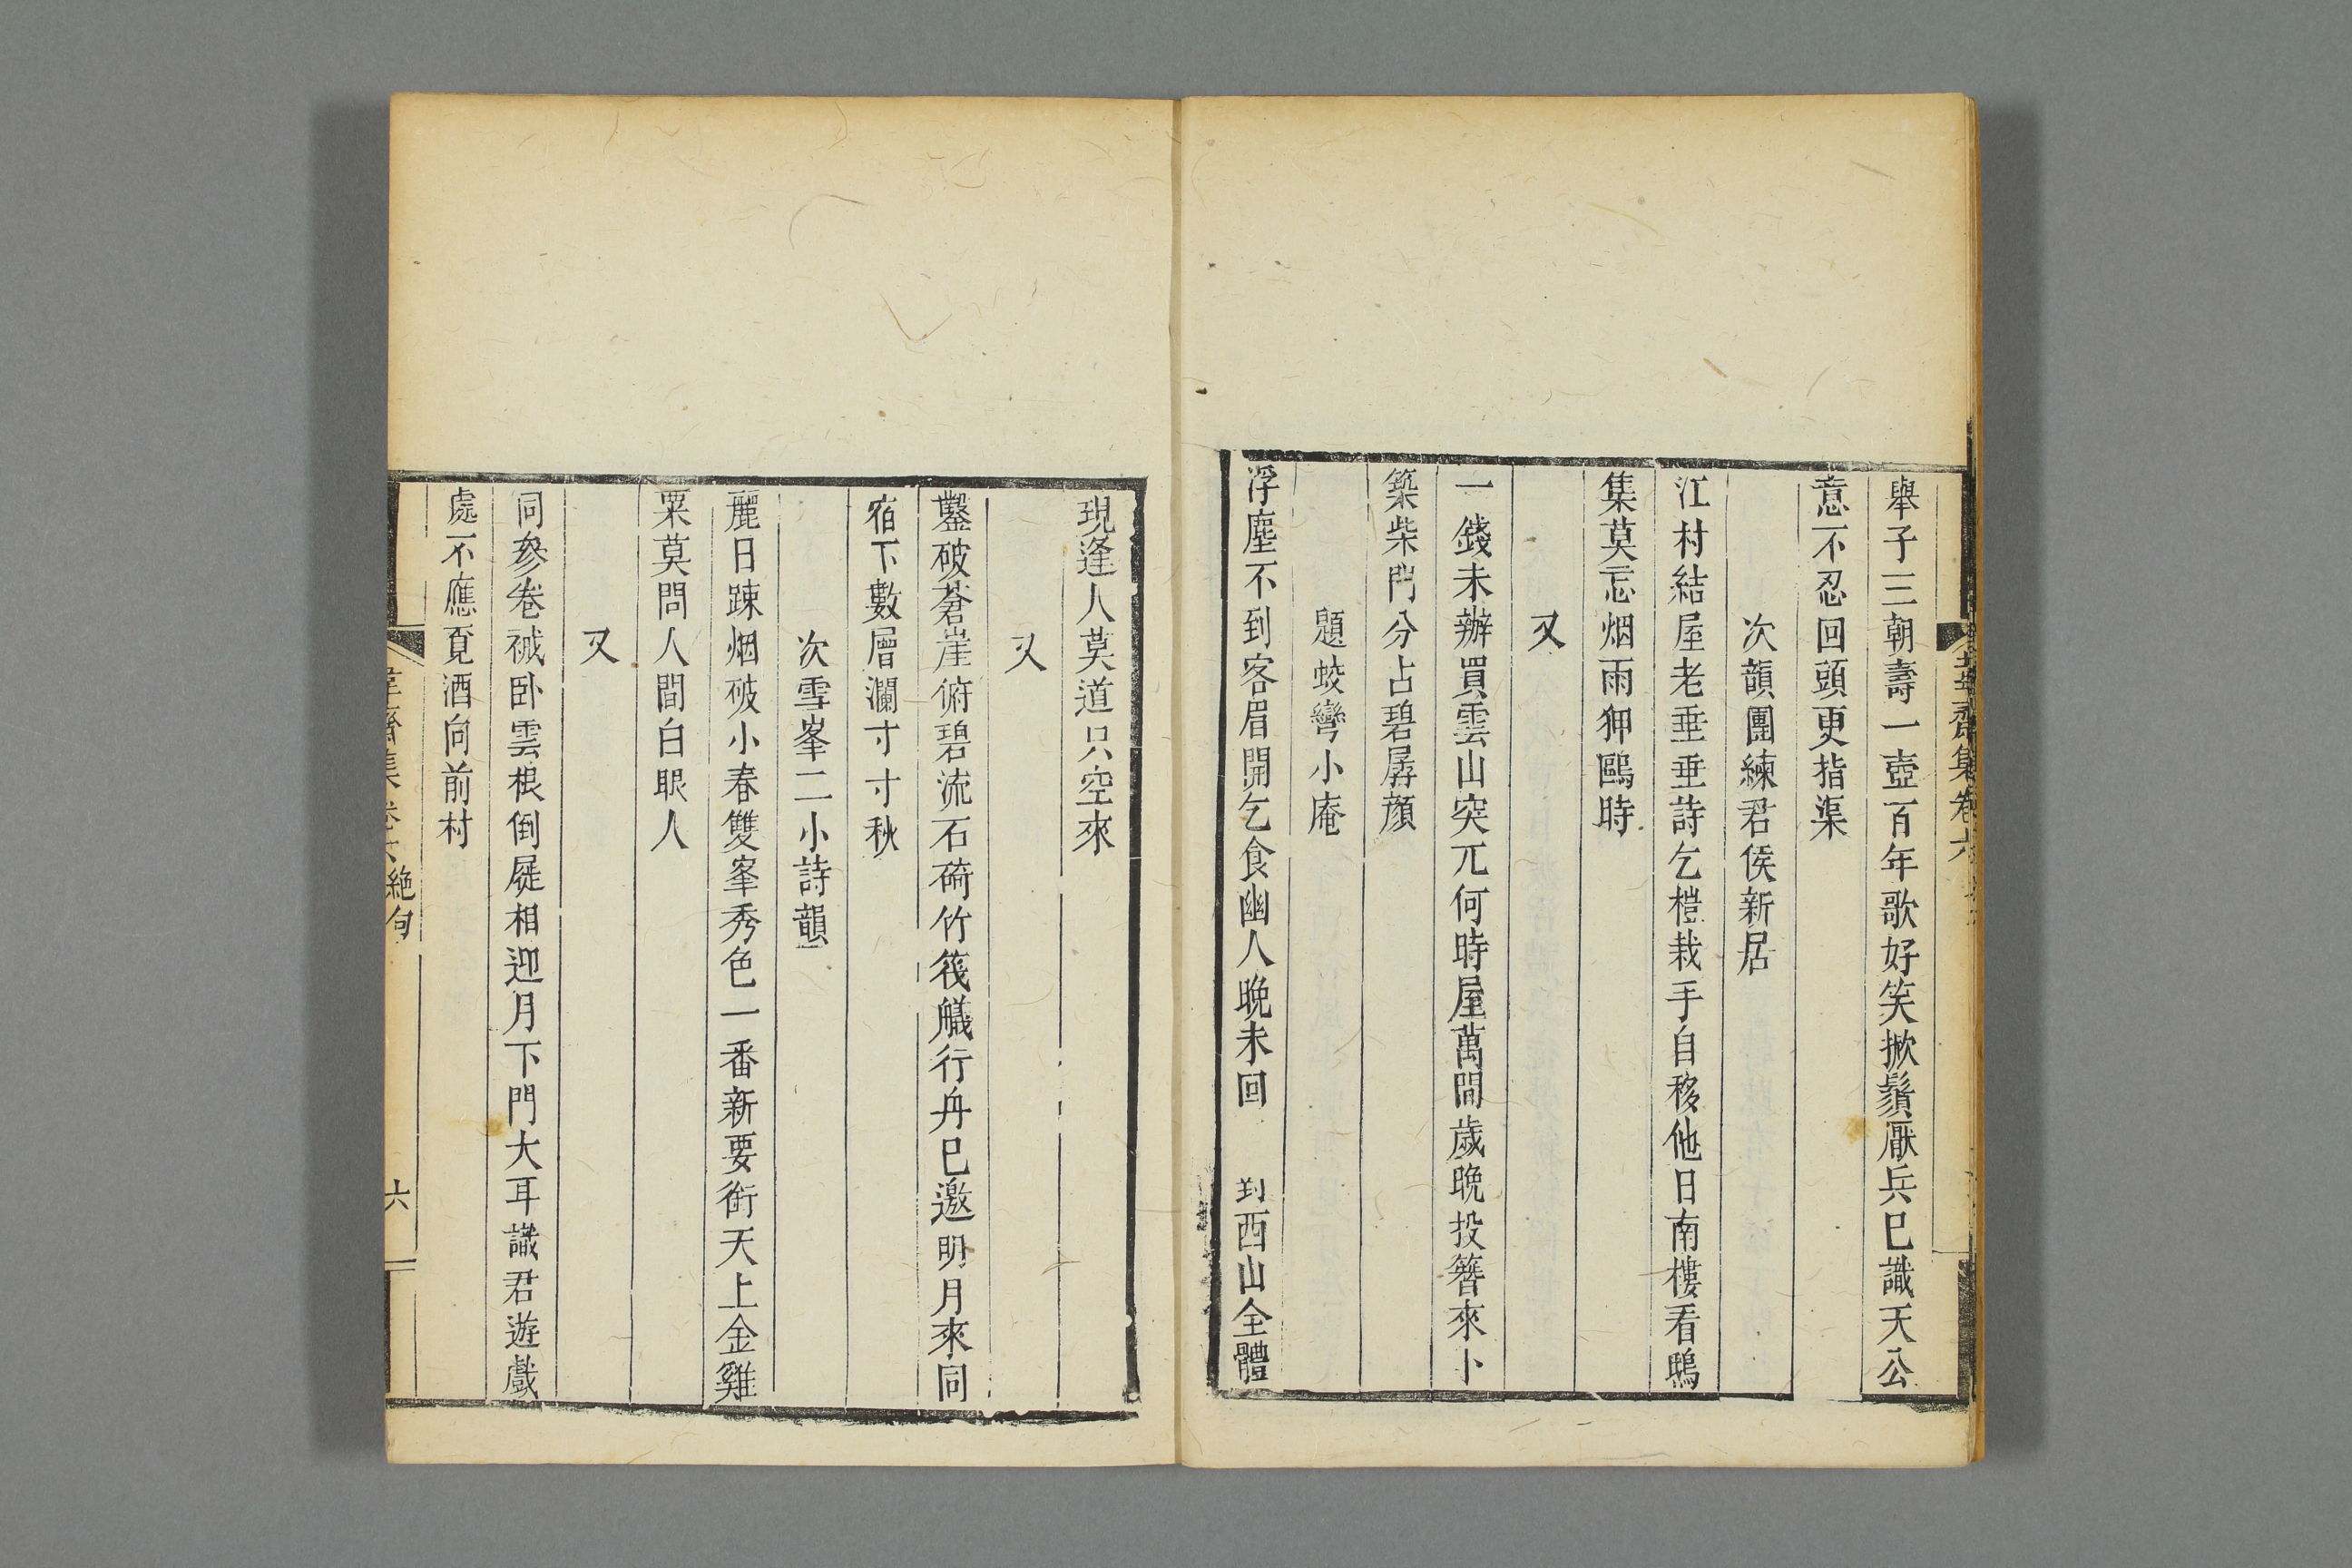 舉子三朝壽一壺百年歌好笑掀鬚厭兵已識天公
意不忍回頭更指渠
次韻團練君侯新居
江村結屋老垂垂詩乞榿栽手自移他日南樓看鴟
集莫忘烟雨狎鷗時
又
一錢未辦買雲山突兀何時屋萬間歲晚投簪來卜
築柴門分占碧孱顏
題蛟彎小庵
浮塵不到客眉開乞食幽人晚未回 到西山全體
現逢人莫道只空來
又
鑿破蒼崖俯碧流石碕竹筏艤行舟已邀明月來同
宿下數層瀾寸寸秋
次雪峯二小詩韻
麗日踈烟破小春雙峯秀色一番新要銜天上金雞
粟莫問人間白眼人
又
同參卷裓卧雲根倒屣相迎月下門大耳識君遊戲
處不應覔酒向前村
韋齋集卷六 絶句
六